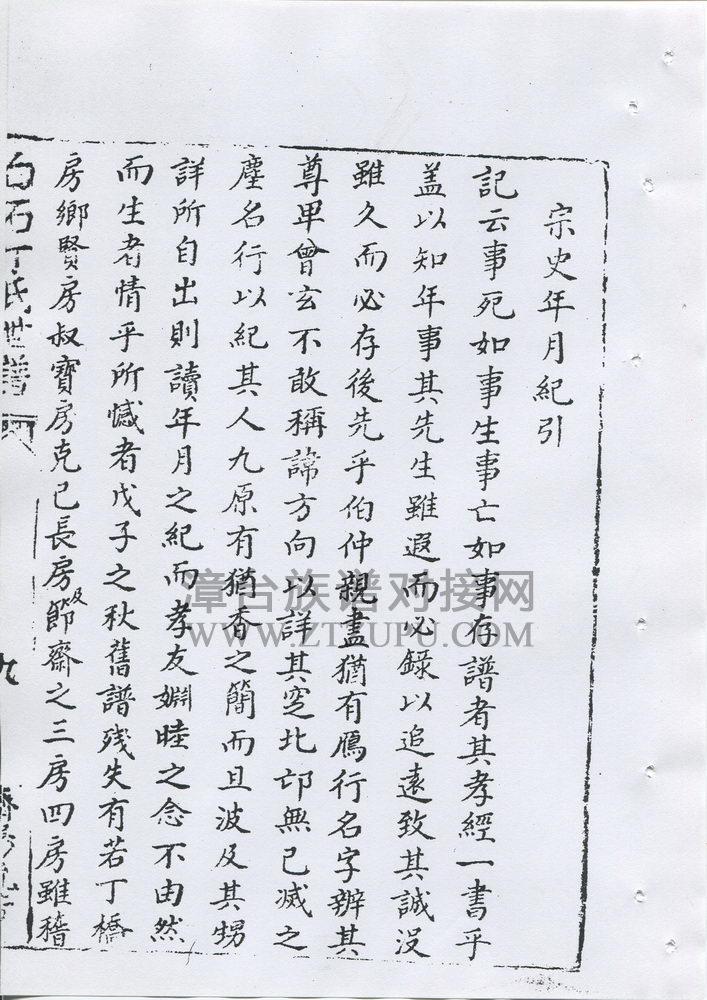 宗史年月紀引
記云事死如事生事亡如事存譜者其孝經一書乎
盖以知年事其先生雖遐而必錄以追遠致其誠没
雖久而必存後先乎伯仲親盡猶有鴈行名字辨其
尊卑曾玄不敢稱諱方向以詳其窆北邙無已滅之
塵名行以紀其人九原有猶香之簡而且波及其甥
詳所自出則讀年月之紀而孝友婣睦之念不由然
而生者情乎所憾者戊子之秋舊譜残失有若丁橋
房鄉賢房叔寶房克己長房及節齋之三房四房雖稽
白石丁氏世譜
九
漳台族谱对接网
WWW.ZTZUPU.COM